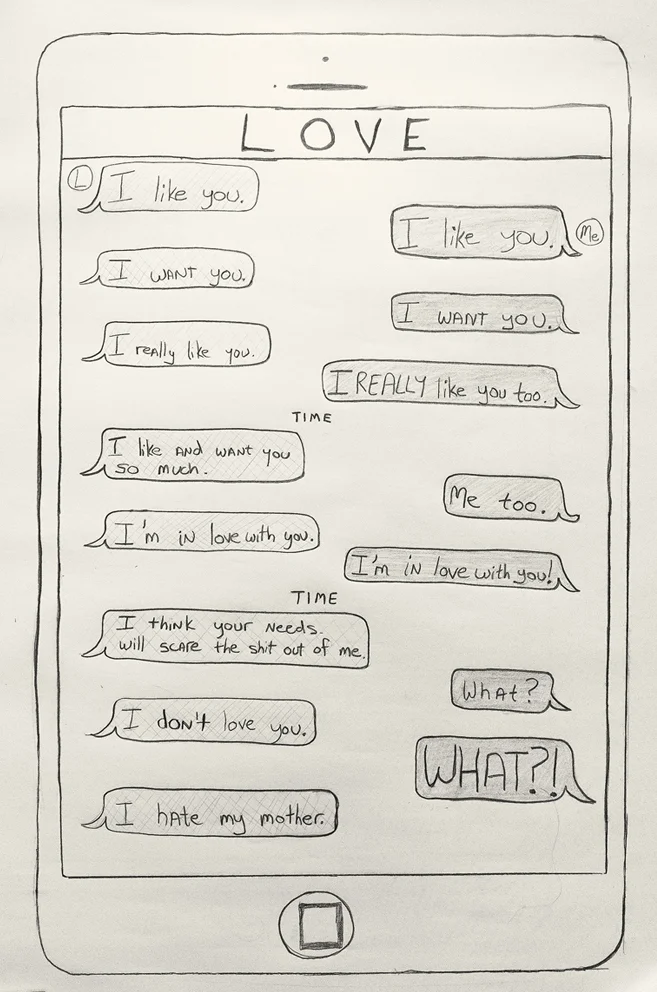 LOVE
L
I like you.
I like you.
Me
I WANT you.
I WANT you.
I really like you.
I REALLY like you too.
TIME
I like AND WANT you
so much.
Me too.
I'm in love with you.
I'm in love with you!
TIME
I think your needs.
will scare the shit out of me.
What?
I don't love you.
WHAT?!
I hate my mother.